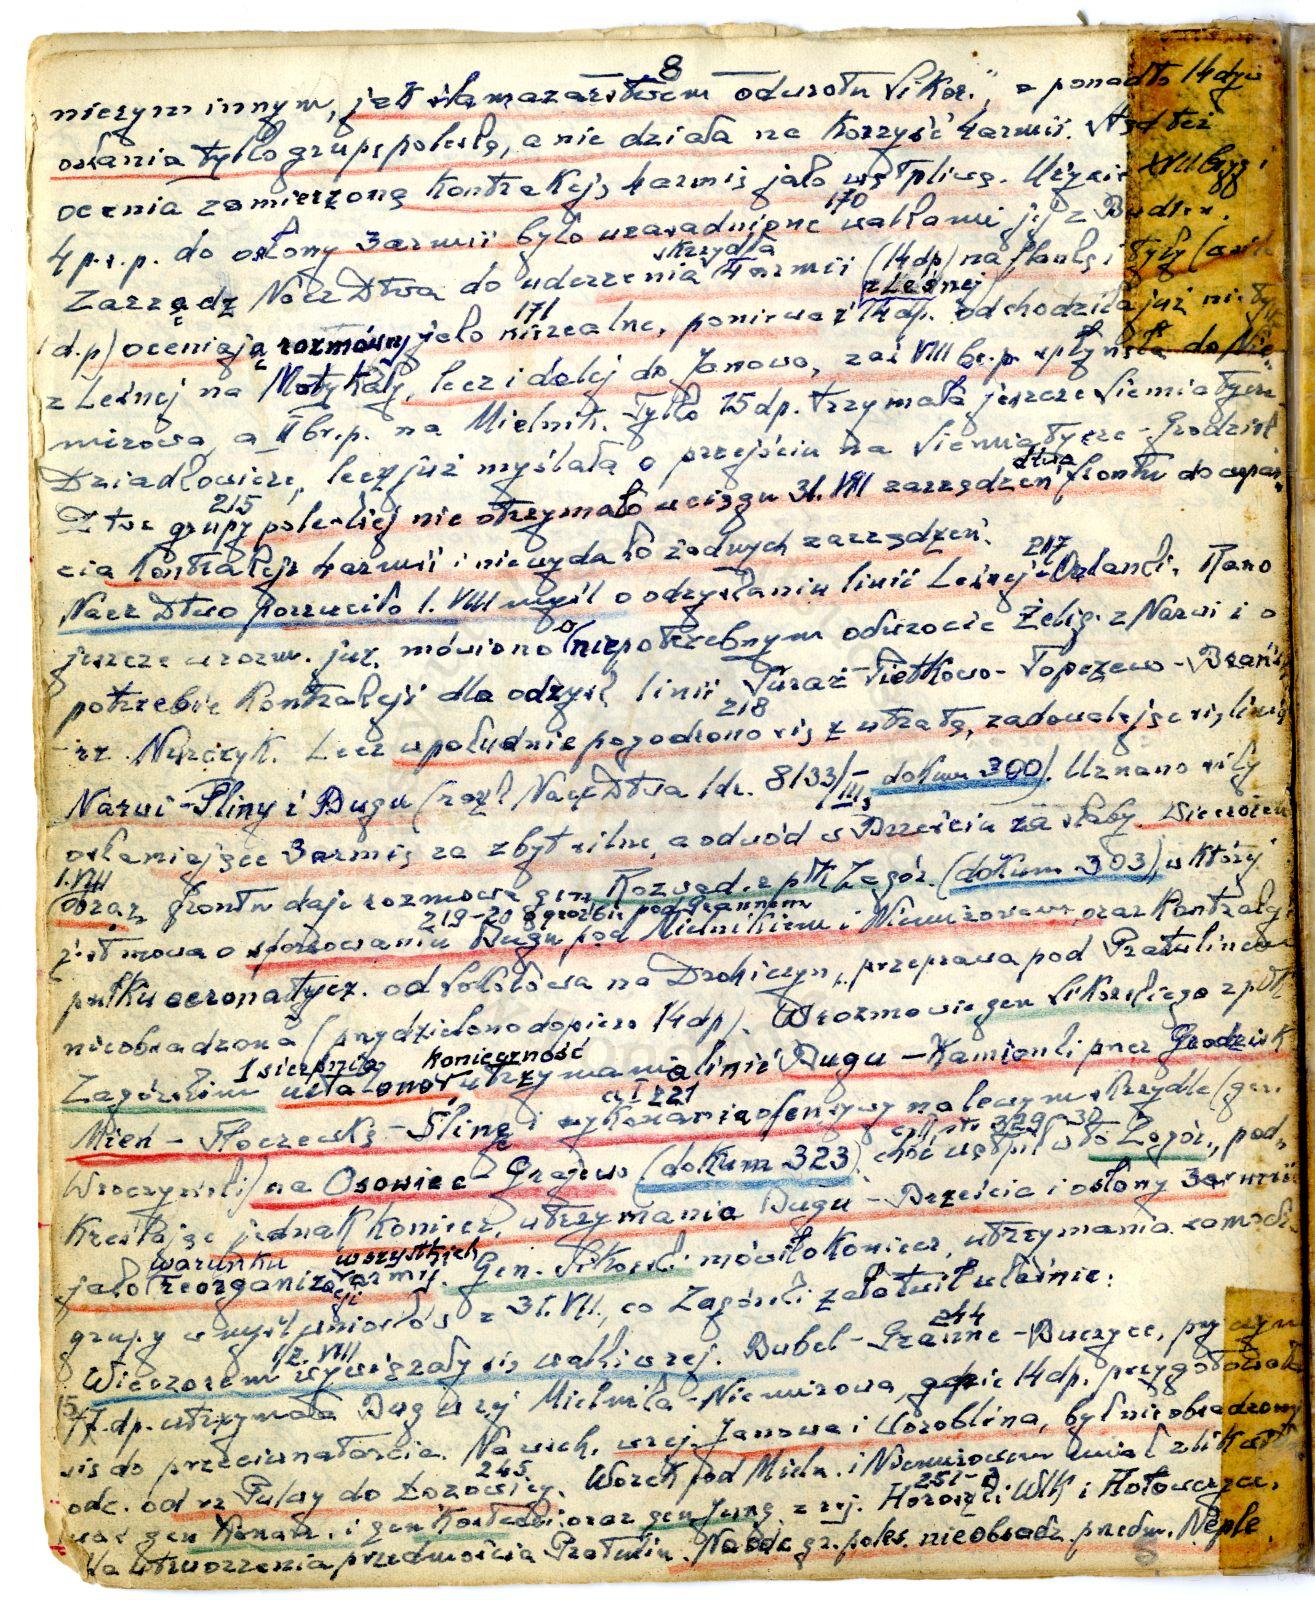 8
niczym innym, jak ślamazarstwem odwrotu Sikor.", a ponadto 14 dyw
osłania tylko grupę poleską, a nie działa na korzyść 4 armii. Stąd też
ocenia zamierzoną kontrakcję 4 armii jako wątpliwą. Użycie XVII bryg i
170
4 p.s.p. do osłony 3 armii było uzasadnione walkami jej z Budien.
skrzydła
Zarządz Nacz Dtwa do uderzenia 4 armii (14 dp) na flankę i tyły
171 z Leśnej
d.p) oceniają rozmówcy jako nierealne, ponieważ 14 dp. odchodziła już nie
z Leśnej na Motykały, lecz i dalej do Janowa, zaś VIII br.p. spłynęła do Nie-
mirowa, a II br.p. na Mielnik. Tylko 15 dp. trzymała jeszcze Siemiatycze-
Dziadkowice, lecz już myślała o przejściu na Siemiatycze - Grodzisk
215 dtwa
Dtwo grupy poleskiej nie otrzymało w ciągu 31.VII zarządzeń frontu do wpar-
cia kontrakcji 4 armii i nie wydało żadnych zarządzeń.
217
Nacz Dtwo porzuciło 1.VIII myśl o odzyskaniu linii Leśnej - Orlanki. Rano
o
jeszcze w rozm. już mówiono niepotrzebnym odwrocie Żelig. z Narwi i o
potrzebie kontrakcji dla odzysk linii Suraż - Pietkowo - Topczewo - Brańsk
218
- rz. Nurczyk. Lecz w południe pogodzono się z utratą, zadowalając się linią
Narwi - Śliny i Bugu (rozk Nacz Dtwa ldz. 8133/III, dokum 300). Uznano siły
osłaniające 3 armię za zbyt silne, a odwód w Brześciu za słaby. Wieczorem
1.VIII
Obraz frontu daje rozmowa gen Rozwad. z płk Zagór. (dokum 303) w której
219-20 o groźbie pod Grannem
jest mowa o sforsowaniu Bugu pod Mielnikiem i Niemirowem, oraz kontrakcji
pułku aeronatycz. od Sokołowa na Drohiczyn, przeprawa pod Pratulinem
nieobsadzona (przydzielono dopiero 14 dp). W rozmowie gen Sikorskiego z płk
1 sierpnia konieczność
Zagórskim ustalono utrzymania linii Bugu - Kamionki przez Grodzisk
a I 221
Mień - Płoczewską - Slinę i wykonania ofensywy na lewym skrzydle (gen.
329-30
Wroczyński) na Osowiec - Grajewo (dokum 323), choć wątpił w to Zagór., pod-
kreślając jednak koniecz. utrzymania Bugu - Brześcia i osłony 3 armii
warunku wszystkich
jako reorganizacji armij. Gen. Sikorski mówił o koniecz. utrzymania
grupy w myśl wniosków z 31.VII, co Zagórski załatwił właśnie:
2.VIII 244
Wieczorem wywiązały się walki w rej. Bubel - Granne - Buczyce, przy czym
15
17 dp. utrzymała Bug w rej Mielnika - Niemirowa, gdzie 14 dp. przygotowała
się do przeciwnatarcia. Na wsch. w rej. Janowa i Woroblina, był nieobsadzony
245
odc. od rz Pulwy do Łozowicy. Worek pod Mieln. i Niemirowem
251-
gen Konarz. i gen Kostecki oraz gen Jung. z rej. Horoszki Wlk i Hołowczyce,
dla utworzenia przedmościa Pratulin. Na odc gr. poles. nieobsadz. przedm. Neple.